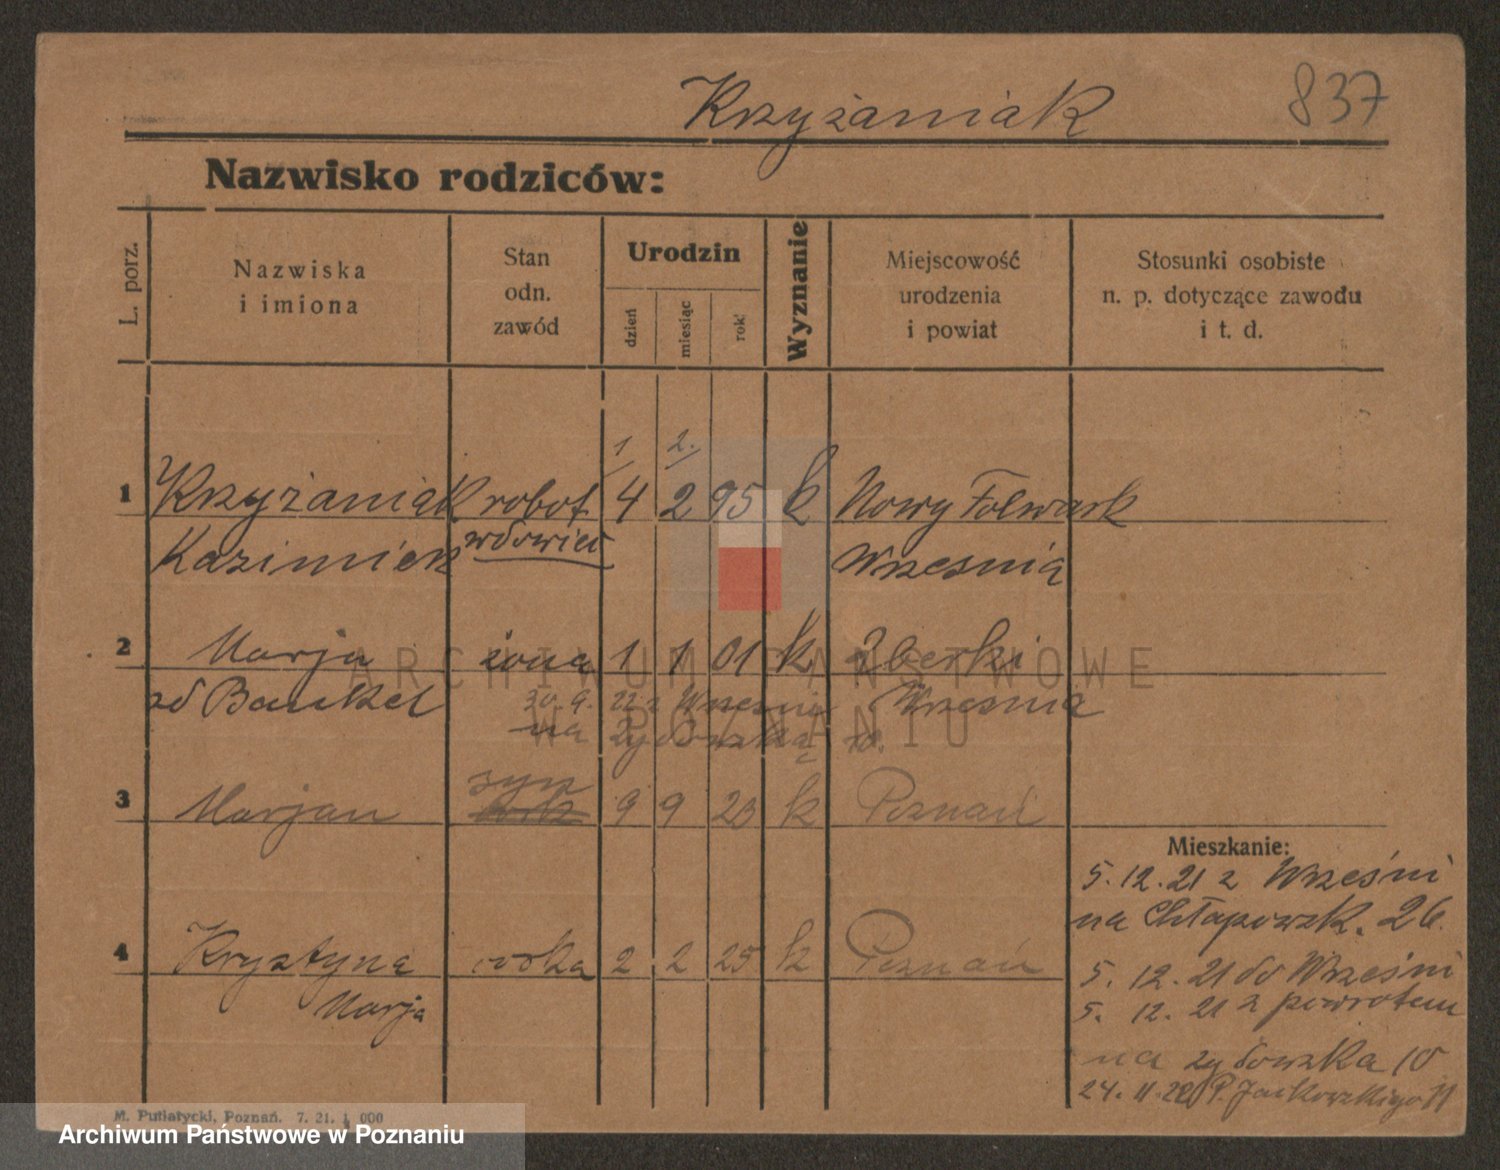 Krzyżaniak
837
Nazwisko rodziców:
L. porz.
Nazwiska
i imiona
Stan
odn.
zawód
Urodzin
dzień
miesiąc
rok
Wyznanie
Miejscowość
urodzenia
i powiat
Stosunki osobiste
n. p. dotyczące zawodu
i t. d.
1 2.
1 Krzyżaniak robot. 4 2 95 k Nowy Folwark
Kazimierz wdowiec Wrzesnia
2 Marja żona 1 1 01 k Zberki
zd Bankel 30.9.22 z Wrzesnia Wrzesnia
na żydowską 10.
syn
3 Marjan 9 9 23 k Poznań
Mieszkanie:
5.12.21 z Wrześni
na Chłapowsk. 26.
4 Krystyna córka 2 2 25 k Poznań
Marja
5. 12. 21 do Wrześni
5. 12. 21 z powrotem
na żydowska 10
24. 11. 22 P. Jackowskiego 11
M. Putiatycki, Poznań. 7. 21. 1 000
ARCHIWUM PAŃSTWOWE
W POZNANIU
Archiwum Państwowe w Poznaniu